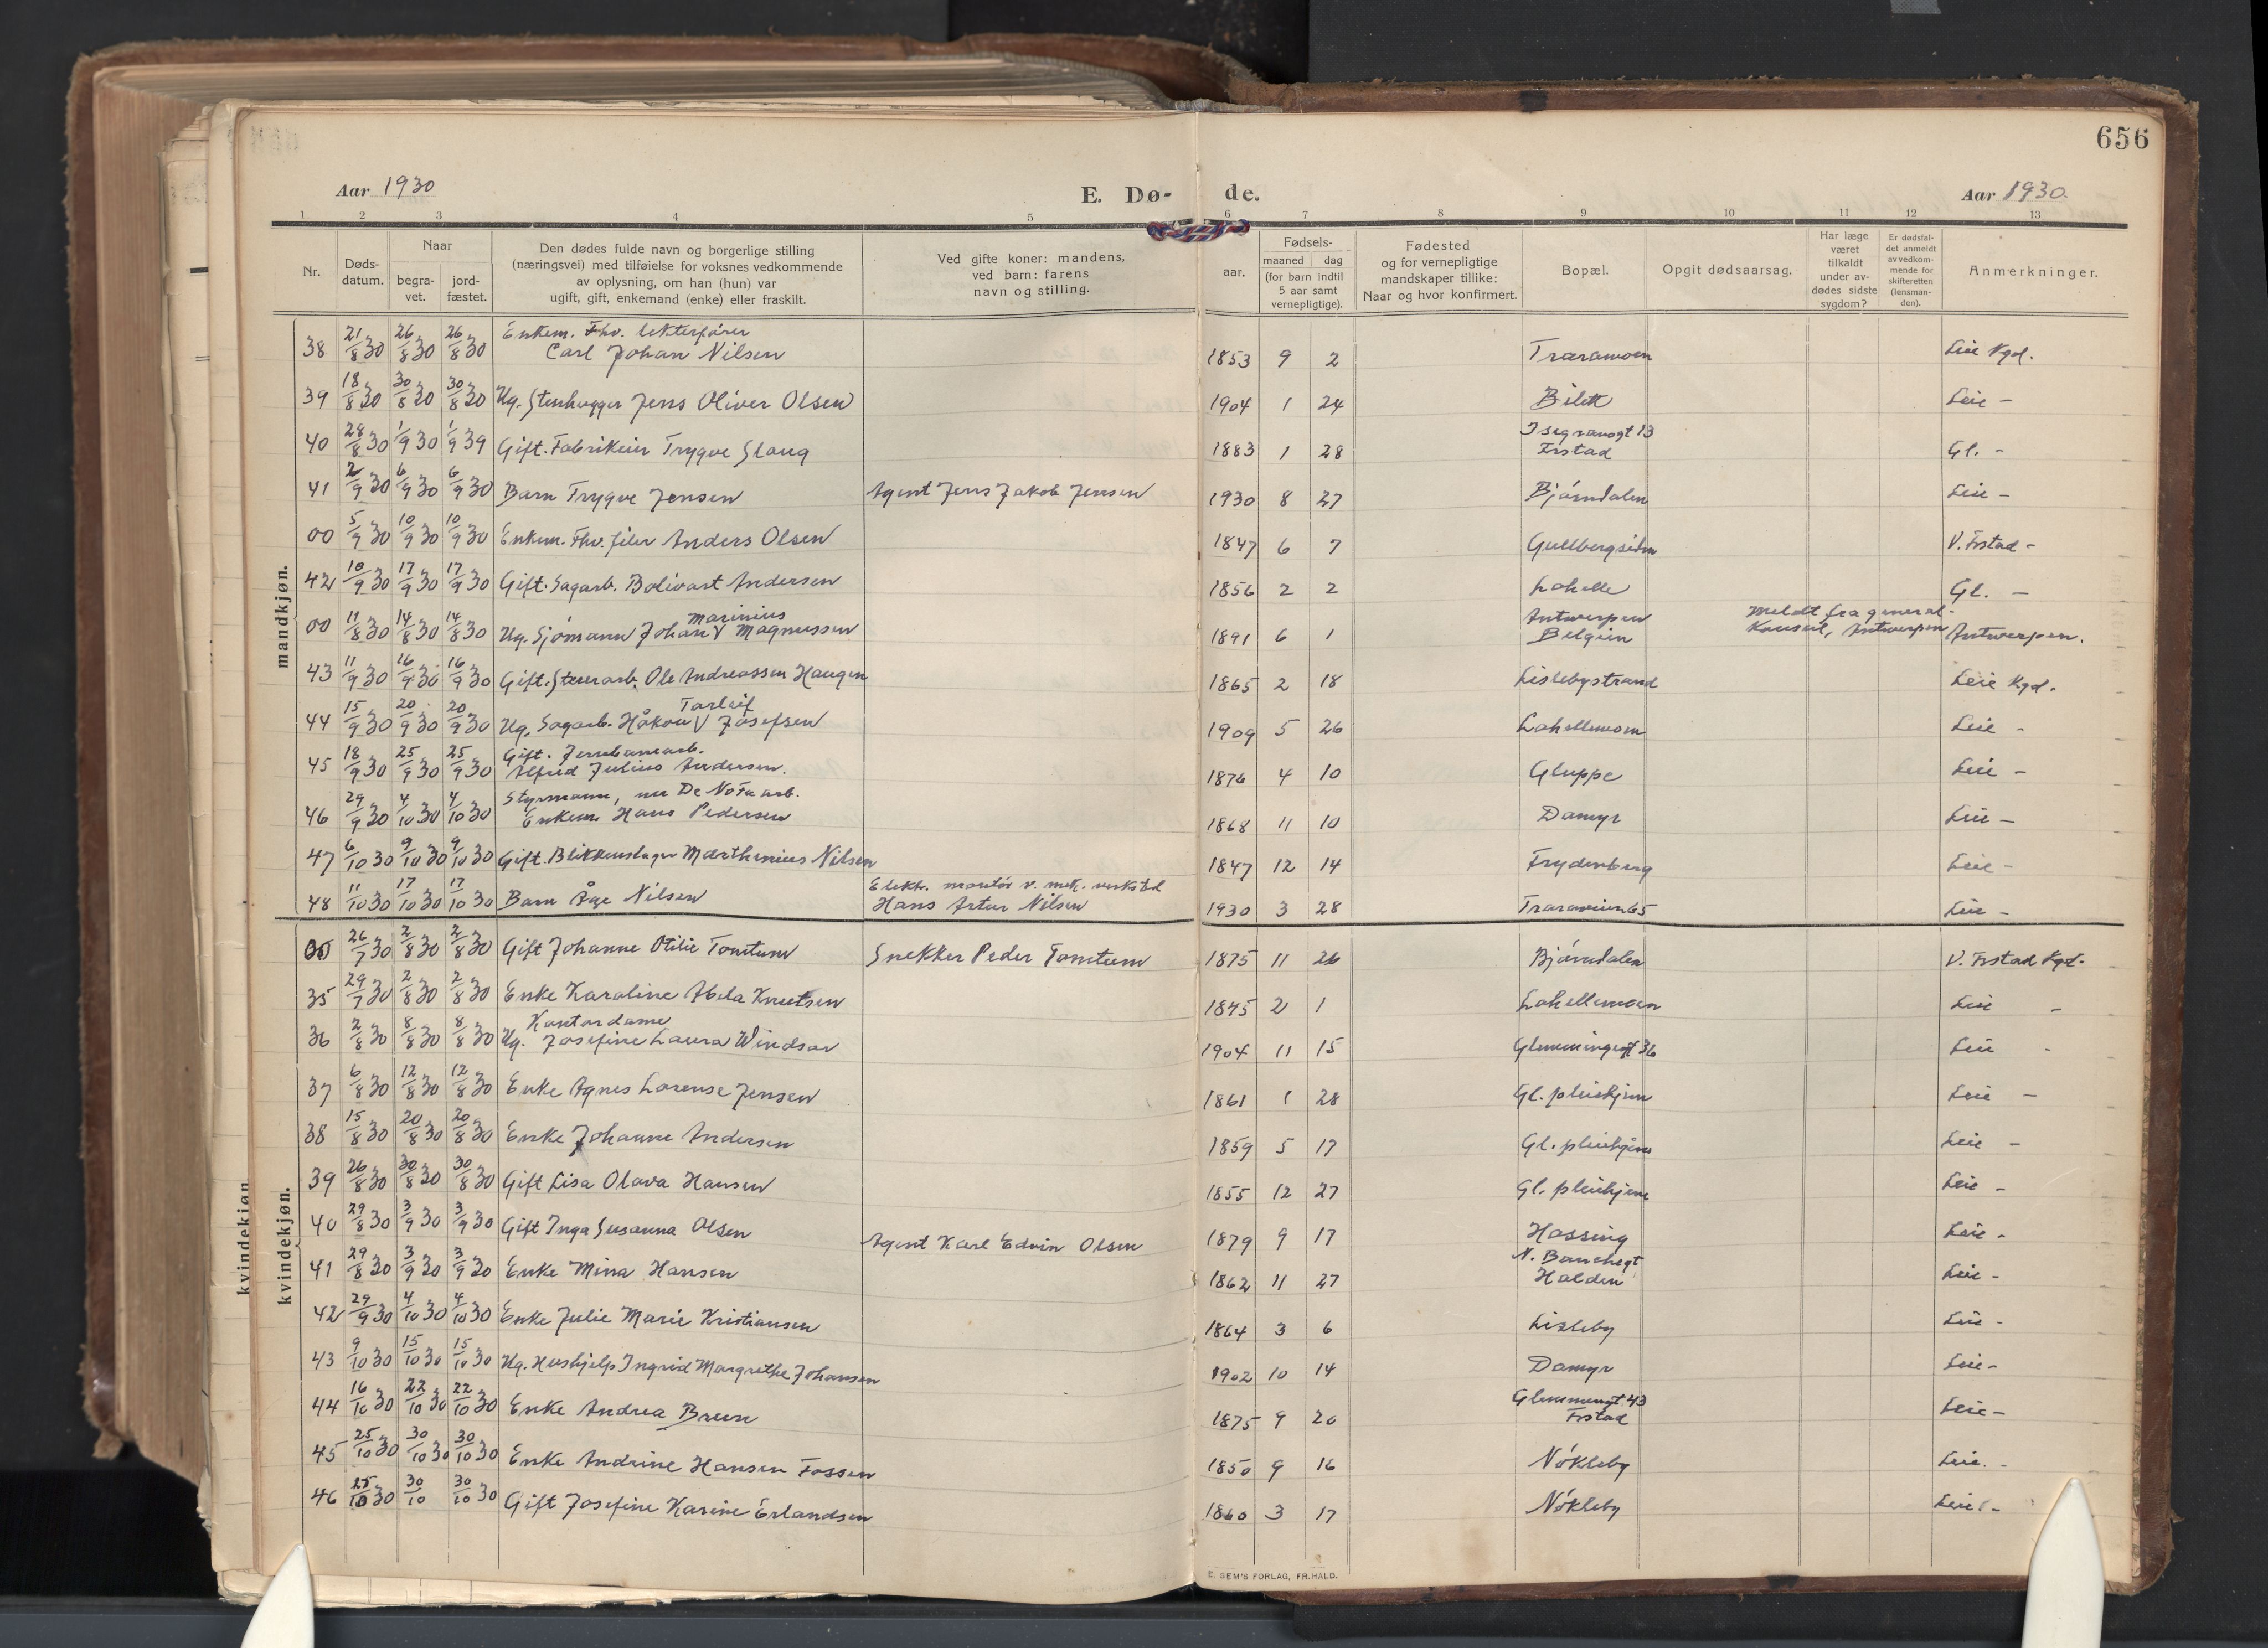 656
Aar 1930
E. Dø- de.
Aar 1930.
1 2 3 4 5 6 7 8 9 10 11 12 13
Nr.
Døds-
datum.
Naar
begra-
vet.
jord-
fæstet.
Den dødes fulde navn og borgerlige stilling
(næringsvei) med tilføielse for voksnes vedkommende
av oplysning, om han (hun) var
ugift, gift, enkemand (enke) eller fraskilt.
Ved gifte koner: mandens,
ved barn: farens
navn og stilling.
aar.
Fødsels-
maaned dag
(for barn indtil
5 aar samt
vernepligtige).
Fødested
og for vernepligtige
mandskaper tillike:
Naar og hvor konfirmert.
Bopæl.
Opgit dødsaarsag.
Har læge
været
tilkaldt
under av-
dødes sidste
sygdom?
Er dødsfal-
det anmeldt
av vedkom-
mende for
skifteretten
(lensman-
den).
Anmerkninger.
mandkjøn.
Enkem. Fhv. lekterfører
38 21/8 30 26/8 30 26/8 30 Carl Johan Nilsen 1853 9 2 Traramoen Leie Kgd.
39 18/8 30 30/8 30 30/8 30 Ug. Stenhugger Jens Oliver Olsen 1904 1 24 Bilett Leie -
Isegranogt 13
40 28/8 30 1/9 30 1/9 39 Gift. Fabrikeier Trygve Slaug 1883 1 28 Frstad Gl. -
41 2/9 30 6/9 30 6/9 30 Barn Trygve Jensen Agent Jens Jakob Jensen 1930 8 27 Bjørndalen Leie -
00 5/9 30 10/9 30 10/9 30 Enkem. Fhv. filer Anders Olsen 1847 6 7 Gullbergsiden V. Frstad -
42 10/9 30 17/9 30 17/9 30 Gift. Sagarb. Bolivart Andersen 1856 2 2 Lahelle Gl. -
Marinius Antwerpen Meldt fra general-
00 11/8 30 14/8 30 14/8 30 Ug. Sjømann Johan V Magnussen 1891 6 1 Belgien Konsul, Antwerpen Antwerpen.
43 11/9 30 16/9 30 16/9 30 Gift. Ole Andreassen Haugen 1865 2 18 Lislebystrand Leie Kgd.
Torleif
44 15/9 30 20/9 30 20/9 30 Ug. Sagarb. Håkon V Josefsen 1909 5 26 Lahellemoen Leie -
Gift. Jernbanearb.
45 18/9 30 25/9 30 25/9 30 Alfred Julius Andersen. 1876 4 10 Gluppe Leie -
Styrmann, nu De NoFa arb.
46 29/9 30 4/10 30 4/10 30 Enkem. Hans Pedersen 1868 11 10 Damyr Leie -
47 6/10 30 9/10 30 9/10 30 Gift. Blikkenslager Marthinius Nilsen 1847 12 14 Frydenberg Leie -
Elektr. montør v. mek. verksted
48 11/10 30 17/10 30 17/10 30 Barn Åge Nilsen Hans Artur Nilsen 1930 3 28 Traraveien 65 Leie -
kvindekjøn.
kvindekjøn
00 26/7 30 2/8 30 2/8 30 Gift Johanne Otilie Tomtum Snekker Peder Tomtum 1875 11 26 Bjørndalen V. Frstad Kgd.
35 29/7 30 2/8 30 2/8 30 Enke Karoline Abela Knutsen 1845 2 1 Lahellemoen Leie -
Kontordame
36 2/8 30 8/8 30 8/8 30 Ug. Josefine Laura Windsor 1904 11 15 Glemmingegt 36 Leie -
37 6/8 30 12/8 30 12/8 30 Enke Agnes Lorense Jensen 1861 1 28 Gl. pleiehjem Leie -
38 15/8 30 20/8 30 20/8 30 Enke Johanne Andersen 1859 5 17 Gl. pleiehjem Leie -
39 26/8 30 30/8 30 30/8 30 Gift Lisa Olava Hansen 1855 12 27 Gl. pleiehjem Leie -
40 29/8 30 3/9 30 3/9 30 Gift Inga Susanna Olsen Agent Karl Edvin Olsen 1879 9 17 Hassing Leie -
N. Banehgt
41 29/8 30 3/9 30 3/9 30 Enke Mina Hansen 1862 11 27 Halden Leie -
42 29/9 30 4/10 30 4/10 30 Enke Julie Marie Kristiansen 1864 3 6 Lisleby Leie -
43 9/10 30 15/10 30 15/10 30 Ug. Hushjelp Ingrid Margrethe Johansen 1902 10 14 Damyr Leie -
Glemmengt. 43
44 16/10 30 22/10 30 22/10 30 Enke Andrea Bruun 1875 9 20 Frstad Leie -
45 25/10 30 30/10 30 30/10 30 Enke Andrine Hansen Fossen 1850 9 16 Nøkleby Leie. -
46 25/10 30 30/10 30/10 30 Gift Josefine Karine Erlandsen 1860 3 17 Nøkleby Leie -
E. SEM'S FORLAG, FR.HALD.